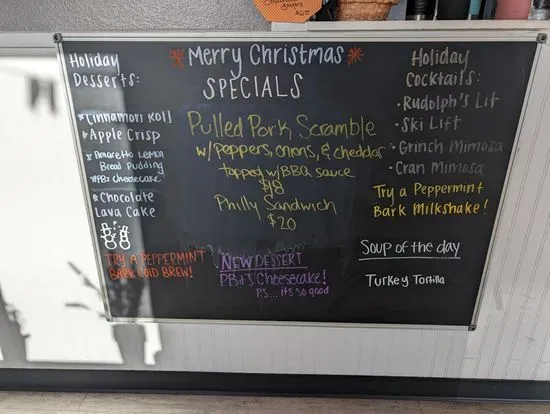 Merry Christmas
SPECIALS
Holiday
Desserts:
*Cinnamon Roll
*Apple Crisp
*Amaretto Lemon
Bread Pudding
*PB+J Cheesecake
*Chocolate
Lava Cake
TRY A PEPPERMINT
BARK COLD BREW!
Pulled Pork Scramble
w/peppers, onions, & cheddar
topped w/BBQ sauce
$18
Philly Sandwich
$20
NEW DESSERT
PB+J Cheesecake!
P.S... it's so good
Holiday
Cocktails:
• Rudolph's Lit
• Ski Lift
• Grinch Mimosa
• Cran Mimosa
Try a Peppermint
Bark Milkshake!
Soup of the day
Turkey Tortilla